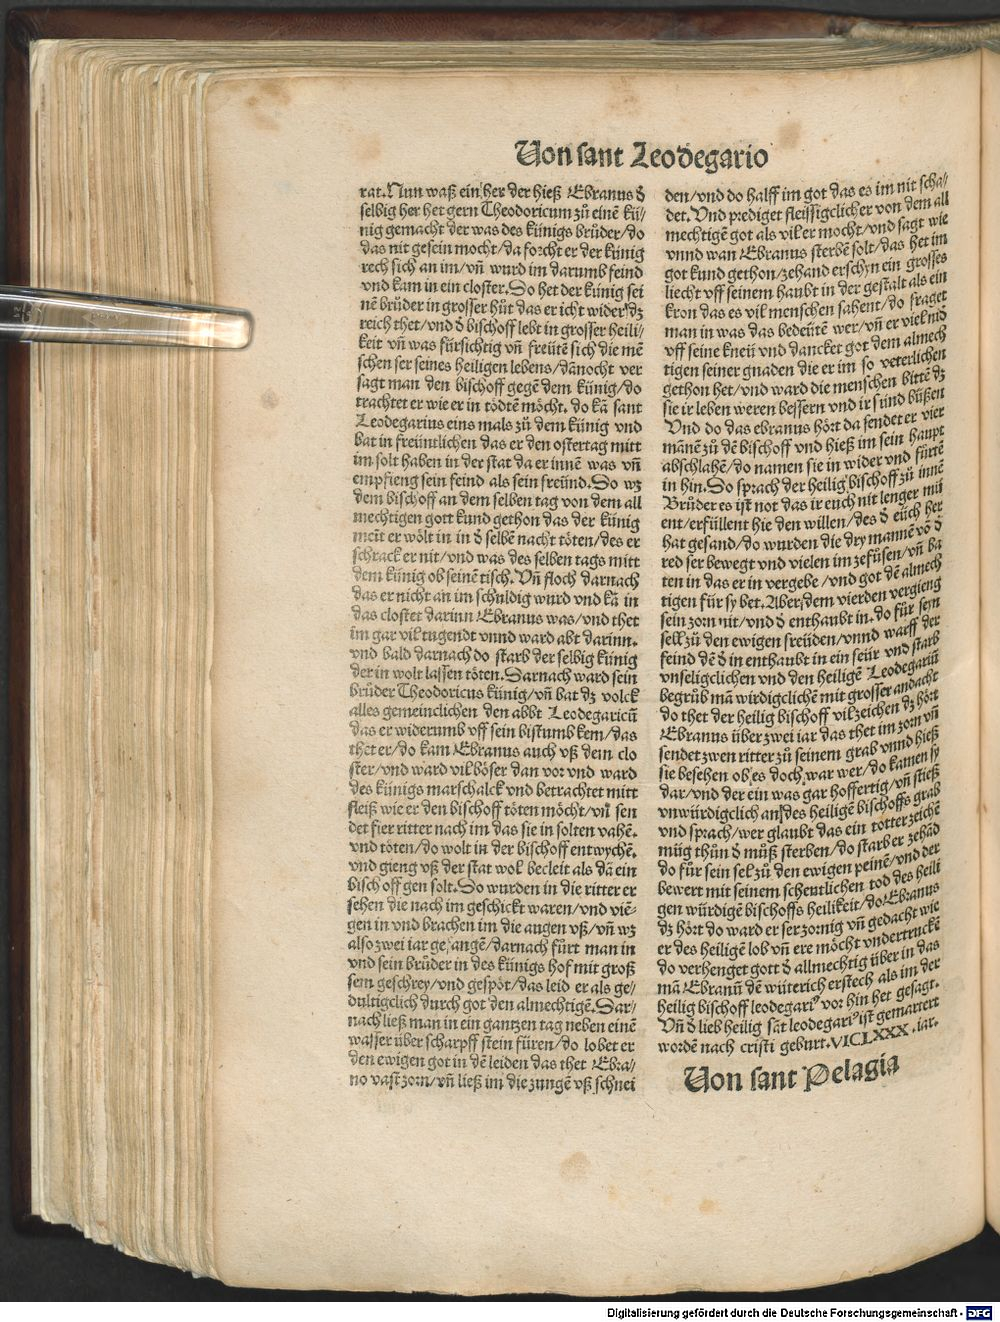 Von sant Leodegario
rat. Nun waß ein her der hieß Ebranus d̄
selbig her het gern Theodoricum zů einē kü⸗
nig gemacht der was des künigs brůder/do
das nit gesein mocht/da forcht er der künig
rech sich an im/vn̄ wurd im darumb feind
vnd kam in ein closter. So het der künig sei
nē brůder in grosser hůt das er icht wider dz
reich thet/vnd d̄ bischoff lebt in grosser heili⸗
keit vn̄ was fürsichtig vn̄ freütē sich die mē
schen ser seines heiligen lebens/dānocht ver
sagt man den bischoff gegē dem künig/do
trachtet er wie er in tödtē möcht. do kā sant
Leodegarius eins mals zů dem künig vnd
bat in freüntlichen das er den ostertag mitt
im solt haben in der stat da er innē was vn̄
empfieng sein feind als sein freünd. So wz
dem bischoff an dem selben tag von dem all
mechtigen gott kund gethon das der künig
meit er wölt in in d̄ selbē nacht töten/des er
schrack er nit/vnd was des selben tags mitt
dem künig ob seinē tisch. Vn̄ floch darnach
das er nicht an im schuldig wurd vnd kā in
das closter darinn Ebranus was/vnd thet
im gar vil tugendt vnnd ward abt darinn.
vnd bald darnach do starb der selbig künig
der in wolt lassen töten. Darnach ward sein
brůder Theodoricus künig/vn̄ bat dz volck
alles gemeinclichen den abbt Leodegaricū
das er widerumb vff sein bistumb kem/das
thet er/do kam Ebranus auch vß dem clo
ster/vnd ward vil böser dan vor vnd ward
des künigs marschalck vnd betrachtet mitt
fleiß wie er den bischoff töten möcht/vn̄ sen
det fier ritter nach im das sie in solten vahē.
vnd töten/do wolt in der bischoff entwychē.
vnd gieng vß der stat wol becleit als dā ein
bischoff gen solt. So wurden in die ritter er
sehen die nach im geschickt waren/vnd viē⸗
gen in vnd brachen im die augen vß/vn̄ wz
also zwei iar gefangē/darnach fůrt man in
vnd sein brůder in des künigs hof mit groß
sem geschrey/vnd gespöt/das leid er als ge⸗
dultigclich durch got den almechtigē. Dar⸗
nach ließ man in ein gantzen tag neben einē
wasser über scharpff stein füren/do lobet er
den ewigen got in dē leiden das thet Ebra⸗
no vast zorn/vn̄ ließ im die zungē vß schnei
den/vnd do halff im got das es im nit scha⸗
det. Vnd prediget fleissigclicher von dem all
mechtigē got als vil er mocht/vnd sagt wie
vnnd wan Ebranus sterbē solt/das het im
got kund gethon/zehand erschyn ein grosses
liecht vff seinem haubt in der gestalt als ein
kron das es vil menschen sahent/do fraget
man in was das bedeütē wer/vn̄ er viel nid
vff seine kneü vnd dancket got dem almech
tigen seiner gnaden die er im so veterlichen
gethon het/vnd ward die menschen bittē dz
sie ir leben weren bessern vnd ir sünd bůßen
Vnd do das ebranus hört da sendet er vier
mānē zů dē bischoff vnd hieß im sein haupt
abschlahē/do namen sie in wider vnd fürtē
in hin. So sprach der heilig bischoff zů innē
Brůder es ist not das ir euch nit lenger mü
ent/erfüllent hie den willen/des d̄ eüch her
hat gesand/do wurden die dry mannē vō d̄
red ser bewegt vnd vielen im zefůsen/vn̄ ba
ten in das er in vergebe/vnd got dē almech
tigen für sy bet. Aber dem vierden vergieng
sein zorn nit/vnd d̄ enthaubt in. do für sein
sell zů den ewigen freüden/vnnd warff der
feind dē d̄ in enthaubt in ein feür vnd starb
vnseligclichen vnd den heiligē Leodegariū
begrůb mā wirdigclichē mit grosser andacht
do thet der heilig bischoff vil zeichen dz hört
Ebranus über zwei iar das thet im zorn vn̄
sendet zwen ritter zů seinem grab vnnd hieß
sie besehen ob es doch war wer/do kamen sy
dar/vnd der ein was gar hoffertig/vn̄ stieß
vnwürdigclich an des heiligē bischoffs grab
vnd sprach/wer glaubt das ein totter zeichē
müg thůn d̄ můß sterben/do starb er zehād
do fůr sein sel zů den ewigen peinē/vnd der
bewert mit seinem schentlichen tod des heili
gen würdigē bischoffs heilikeit/do Ebranus
dz hört do ward er ser zornig vn̄ gedacht wie
er des heiligē lob vn̄ ere möcht vndertruckē
do verhenget gott d̄ allmechtig über in das
mā Ebranū dē wüterich erstech als im der
heilig bischoff leodegariꝰ vor hin het gesagt.
Vn̄ d̄ lieb heilig sāt leodegariꝰ ist gemartert
wordē nach cristi geburt. VICLXXX. iar.
Von sant Pelagia
Digitalisierung gefördert durch die Deutsche Forschungsgemeinschaft - DFG